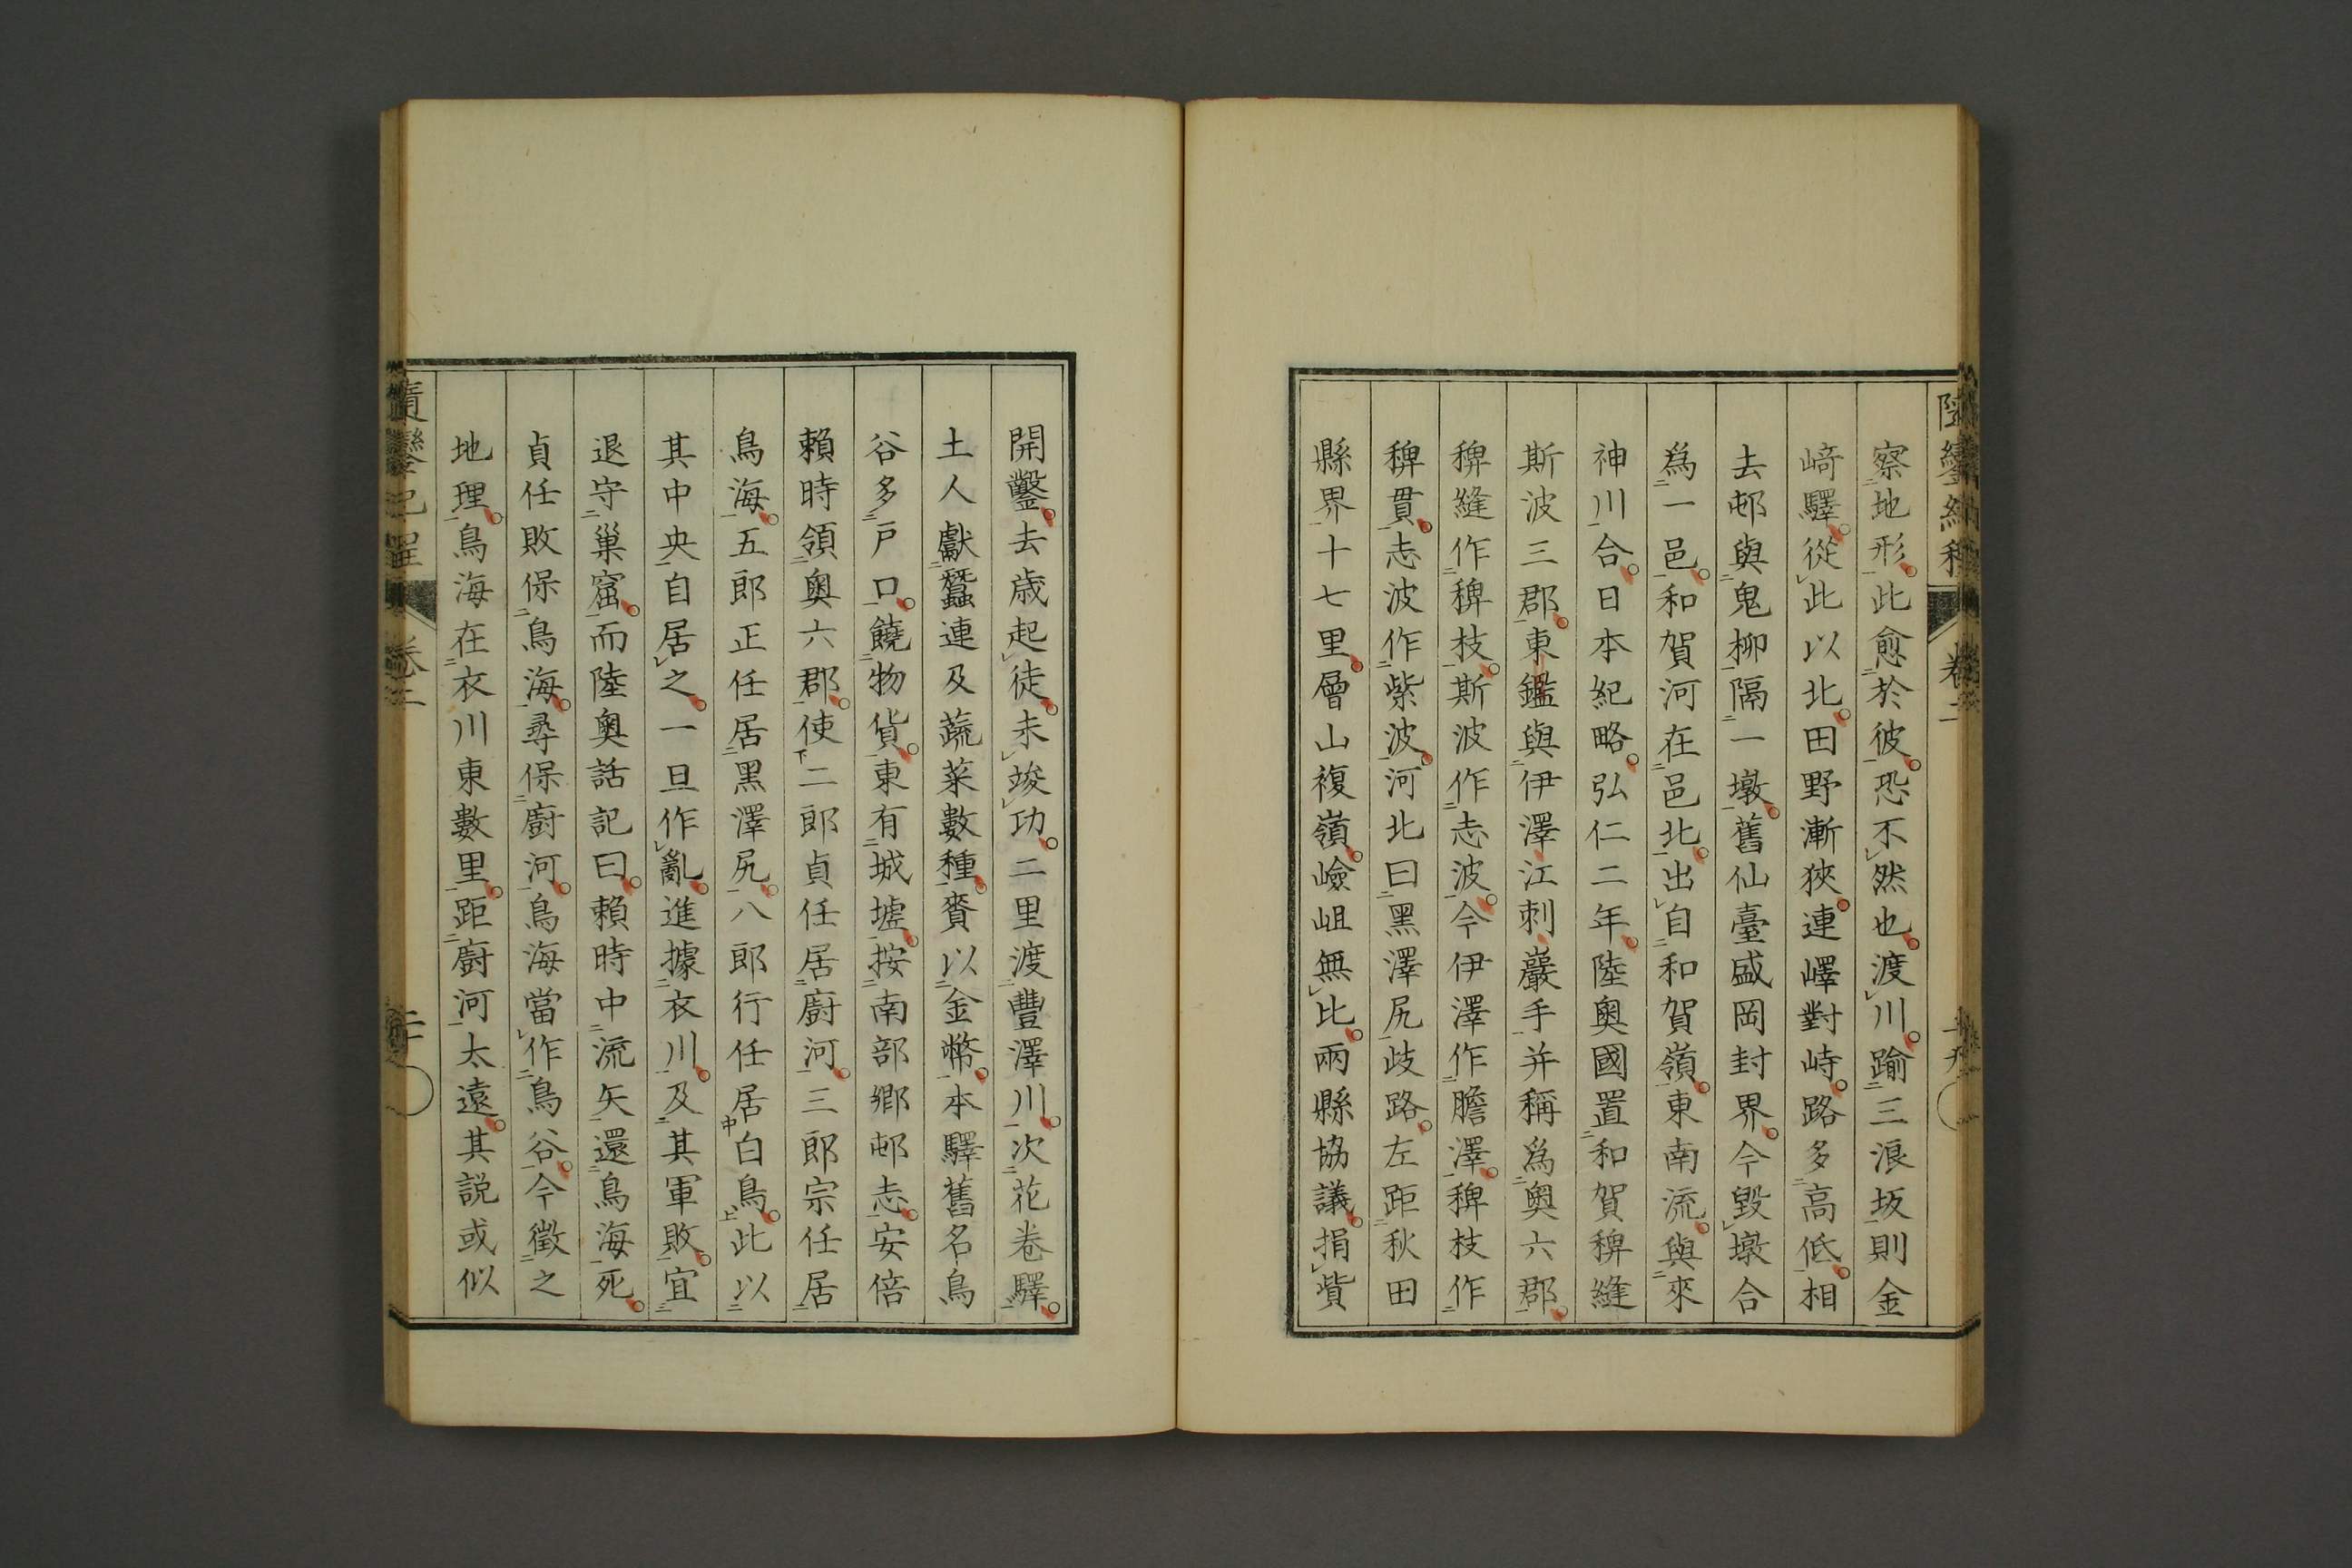 察地形此愈於彼恐不然也渡川踰三浪坂則金
﨑驛從此以北田野漸狹連嶧對峙路多高低相
去邨與鬼柳隔一墩舊仙臺盛岡封界今毀墩合
為一邑和賀河在邑北出自和賀嶺東南流與來
神川合日本紀略弘仁二年陸奧國置和賀稗縫
斯波三郡東鑑與伊澤江刺巖手并稱為奧六郡
稗縫作稗枝斯波作志波今伊澤作膽澤稗枝作
稗貫志波作紫波河北曰黑澤尻歧路左距秋田
縣界十七里層山複嶺嶮岨無比兩縣協議捐貲
開鑿去歲起徒未竣功二里渡豐澤川次花卷驛
土人獻蠶連及蔬菜數種賚以金幣本驛舊名鳥
谷多戶口饒物貨東有城墟按南部鄉邨志安倍
賴時領奧六郡使二郎貞任居廚河三郎宗任居
鳥海五郎正任居黑澤尻八郎行任居白鳥此以
其中央自居之一旦作亂進據衣川及其軍敗宜
退守巢窟而陸奧話記曰賴時中流矢還鳥海死
貞任敗保鳥海尋保廚河鳥海當作鳥谷今徵之
地理鳥海在衣川東數里距廚河太遠其説或似
卷二